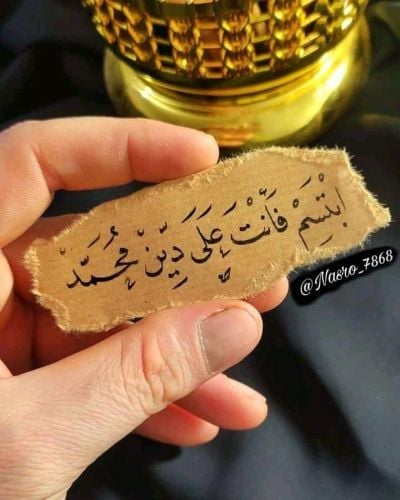 ابْتَسِمْ فَأَنْتَ عَلَى دِينِ مُحَمَّدْ
@Nasro_7868